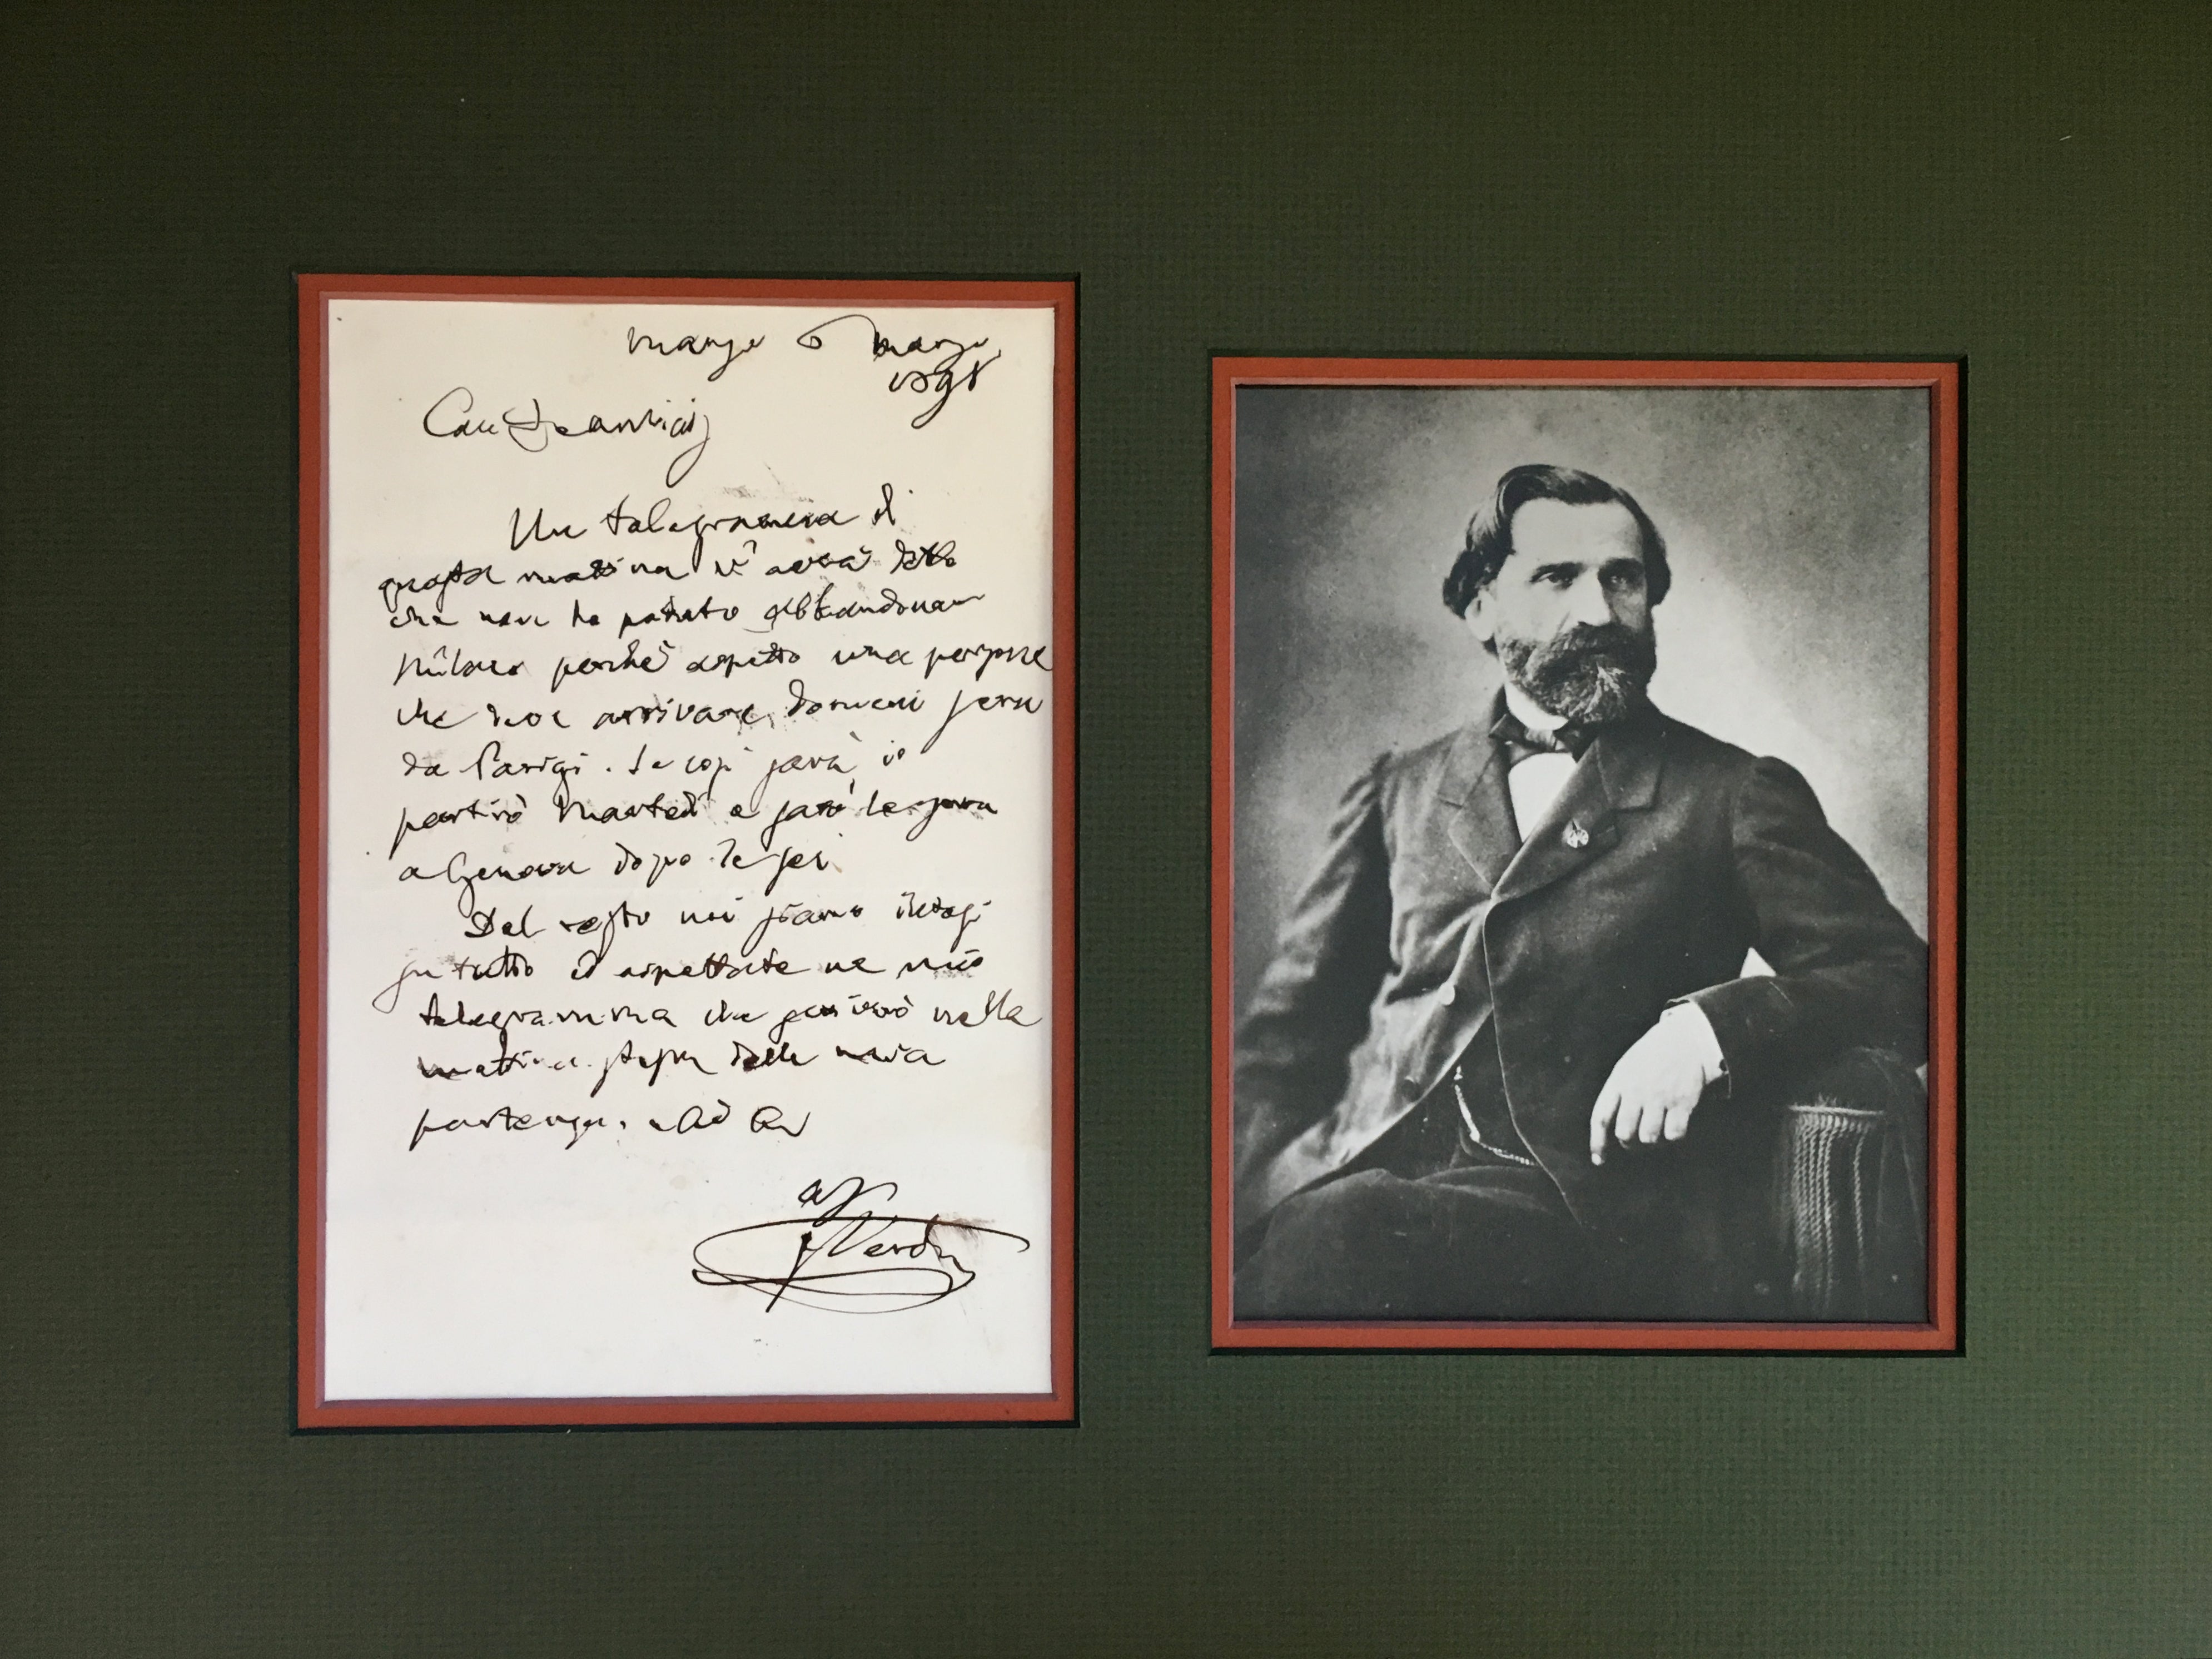 marzo
1898
Un telegramma di
questa mattina v'avrà detto
che non ho potuto abbandonar
Milano perchè aspetto una persona
che deve arrivare domani sera
da Parigi. Se così sarà, io
partirò Martedì e sarò la sera
a Genova dopo le sei
Del resto noi siamo intesi
su tutto ed aspettate un mio
telegramma che invierò nella
mattina stessa della mia
partenza. Ad
aff
GVerdi